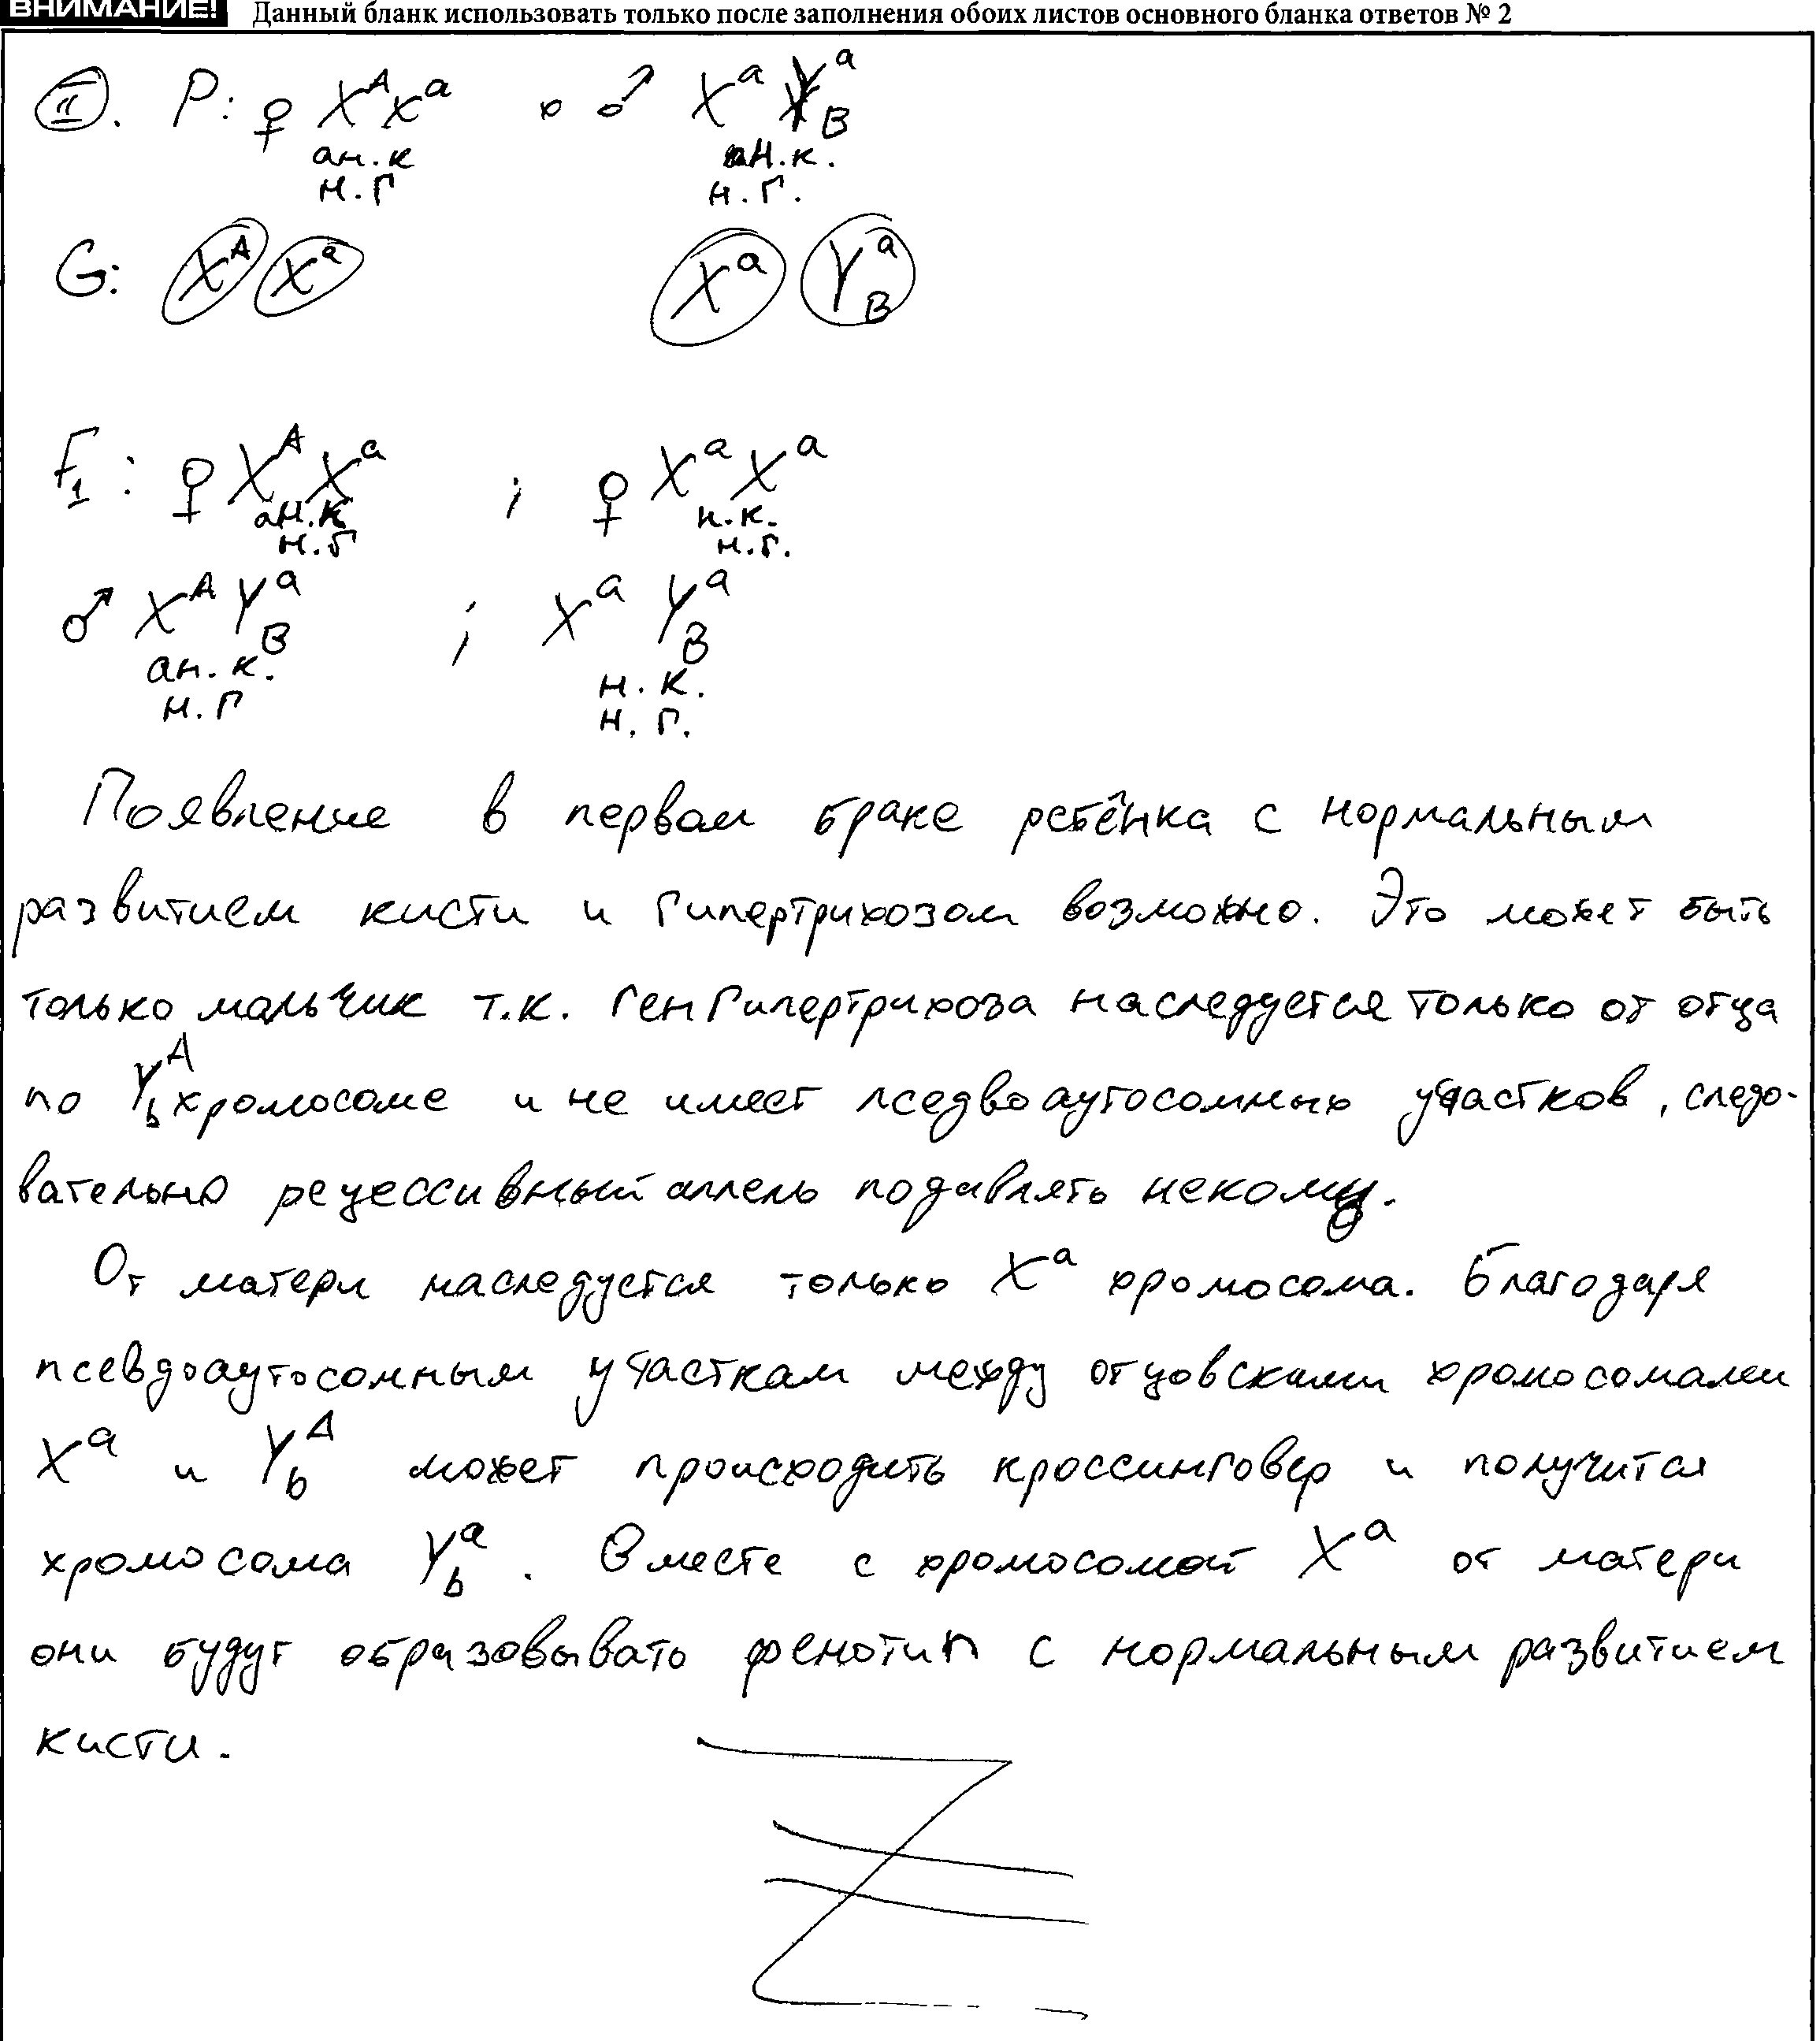 ВНИМАНИЕ! Данный бланк использовать только после заполнения обоих листов основного бланка ответов № 2
II. P: ♀ X^A X^a × ♂ X^a Y^a_B
ан.к ан.к.
н.г н.г.
G: X^A X^a X^a Y^a_B
F1: ♀ X^A X^a ; ♀ X^a X^a
ан.к н.к.
н.г н.г.
♂ X^A Y^a_B ; X^a Y^a_B
ан.к. н.к.
н.г н.г.
Появление в первом браке ребёнка с нормальным
развитием кисти и гипертрихозом возможно. Это может быть
только мальчик т.к. ген гипертрихоза наследуется только от отца
по Y^A_b хромосоме и не имеет пседвоаутосомных участков, следо-
вательно рецессивный аллель подавлять некому.
От матери наследуется только X^a хромосома. Благодаря
псевдоаутосомным участкам между отцовскими хромосомами
X^a и Y^A_b может происходить кроссинговер и получится
хромосома Y^a_b. Вместе с хромосомой X^a от матери
они будут образовывать фенотип с нормальным развитием
кисти.